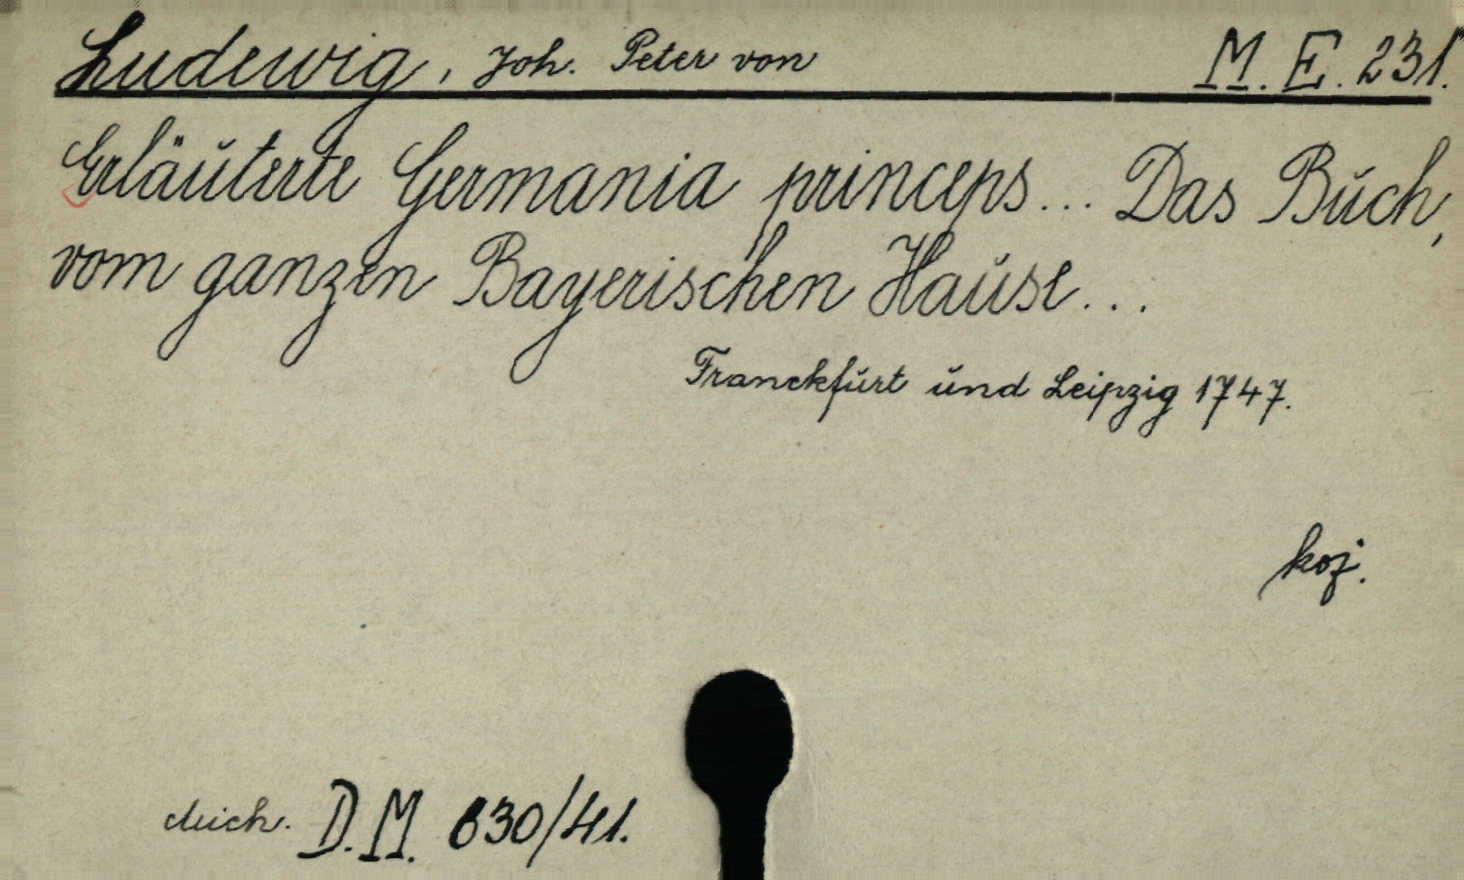 Ludewig, Joh. Peter von M. E. 231.
Erläuterte Germania princeps... Das Buch,
vom ganzen Bayerischen Hause...
Franckfurt und Leipzig 1747.
koj.
D.M. 630/41.